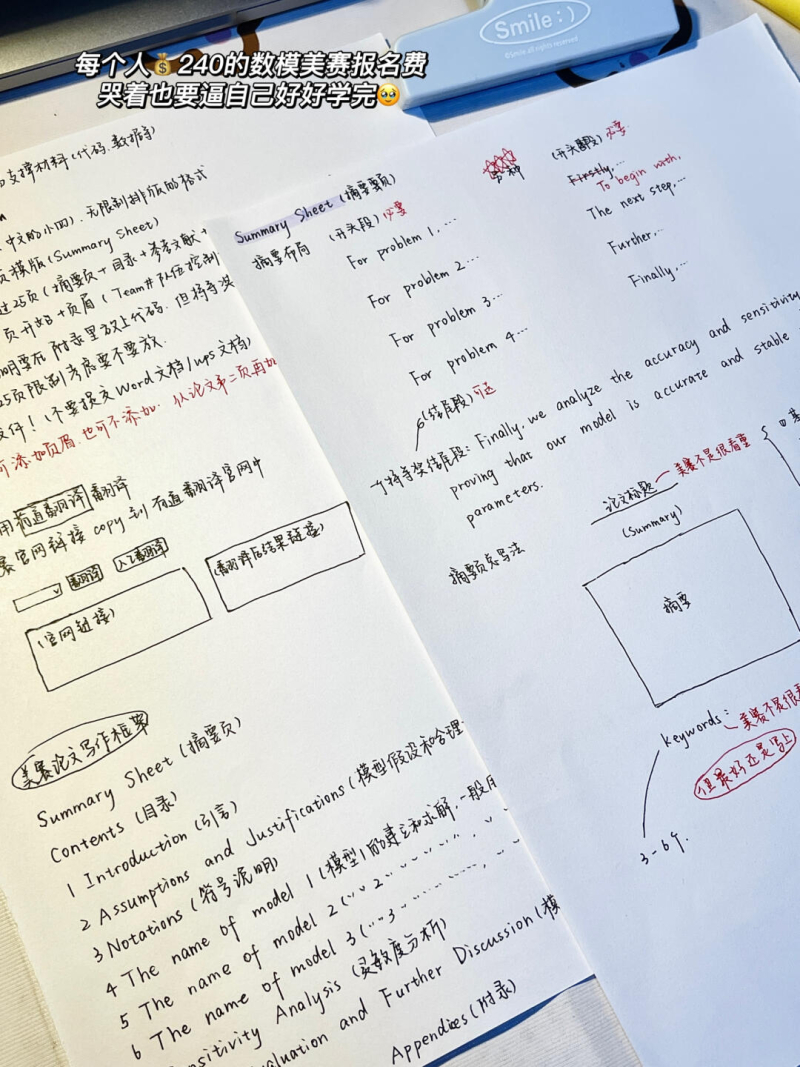 每个人💰240的数模美赛报名费
哭着也要逼自己好好学完🥹
Smile:)
©Smile all rights reserved
支撑材料(代码.数据等)
中文的小四).无限制排版的格式
页模版(Summary Sheet)
过25页(摘要页+目录+参考文献+
页开始+页眉(Team# 队伍控制
明要在附录里放上代码.但将导致
25页限制考虑要不要放.
文件!(不要提交Word文档/wps文档)
可添加页眉.也可不添加.从论文第二页再加
用有道翻译翻译
赛官网链接copy到有道翻译官网中
翻译
人工翻译
(官网链接)
(翻译后结果链接)
美赛论文写作框架
Summary Sheet(摘要页)
Contents(目录)
1 Introduction(引言)
2 Assumptions and Justifications(模型假设和合理
3 Notations(符号说明)
4 The name of model 1(模型1的建立和求解,一般用
5 The name of model 2(…2
6 The name of model 3(…3
Sensitivity Analysis(灵敏度分析)
Evaluation and Further Discussion(模
Appendixes(附录)
Summary Sheet(摘要页)
摘要布局
(开头段)必要
For problem 1,…
For problem 2…
For problem 3…
For problem 4…
(结尾段)可选
另一种
(开头段)必要
Firstly,…
To begin with,
The next step,…
Further…
Finally,…
特等奖结尾段: Finally, we analyze the accuracy and sensitivity
proving that our model is accurate and stable
parameters.
摘要页怎写法
论文标题
美赛不是很看重
(Summary)
摘要
keywords:
美赛不是很看
但最好还是写上
3-6个.